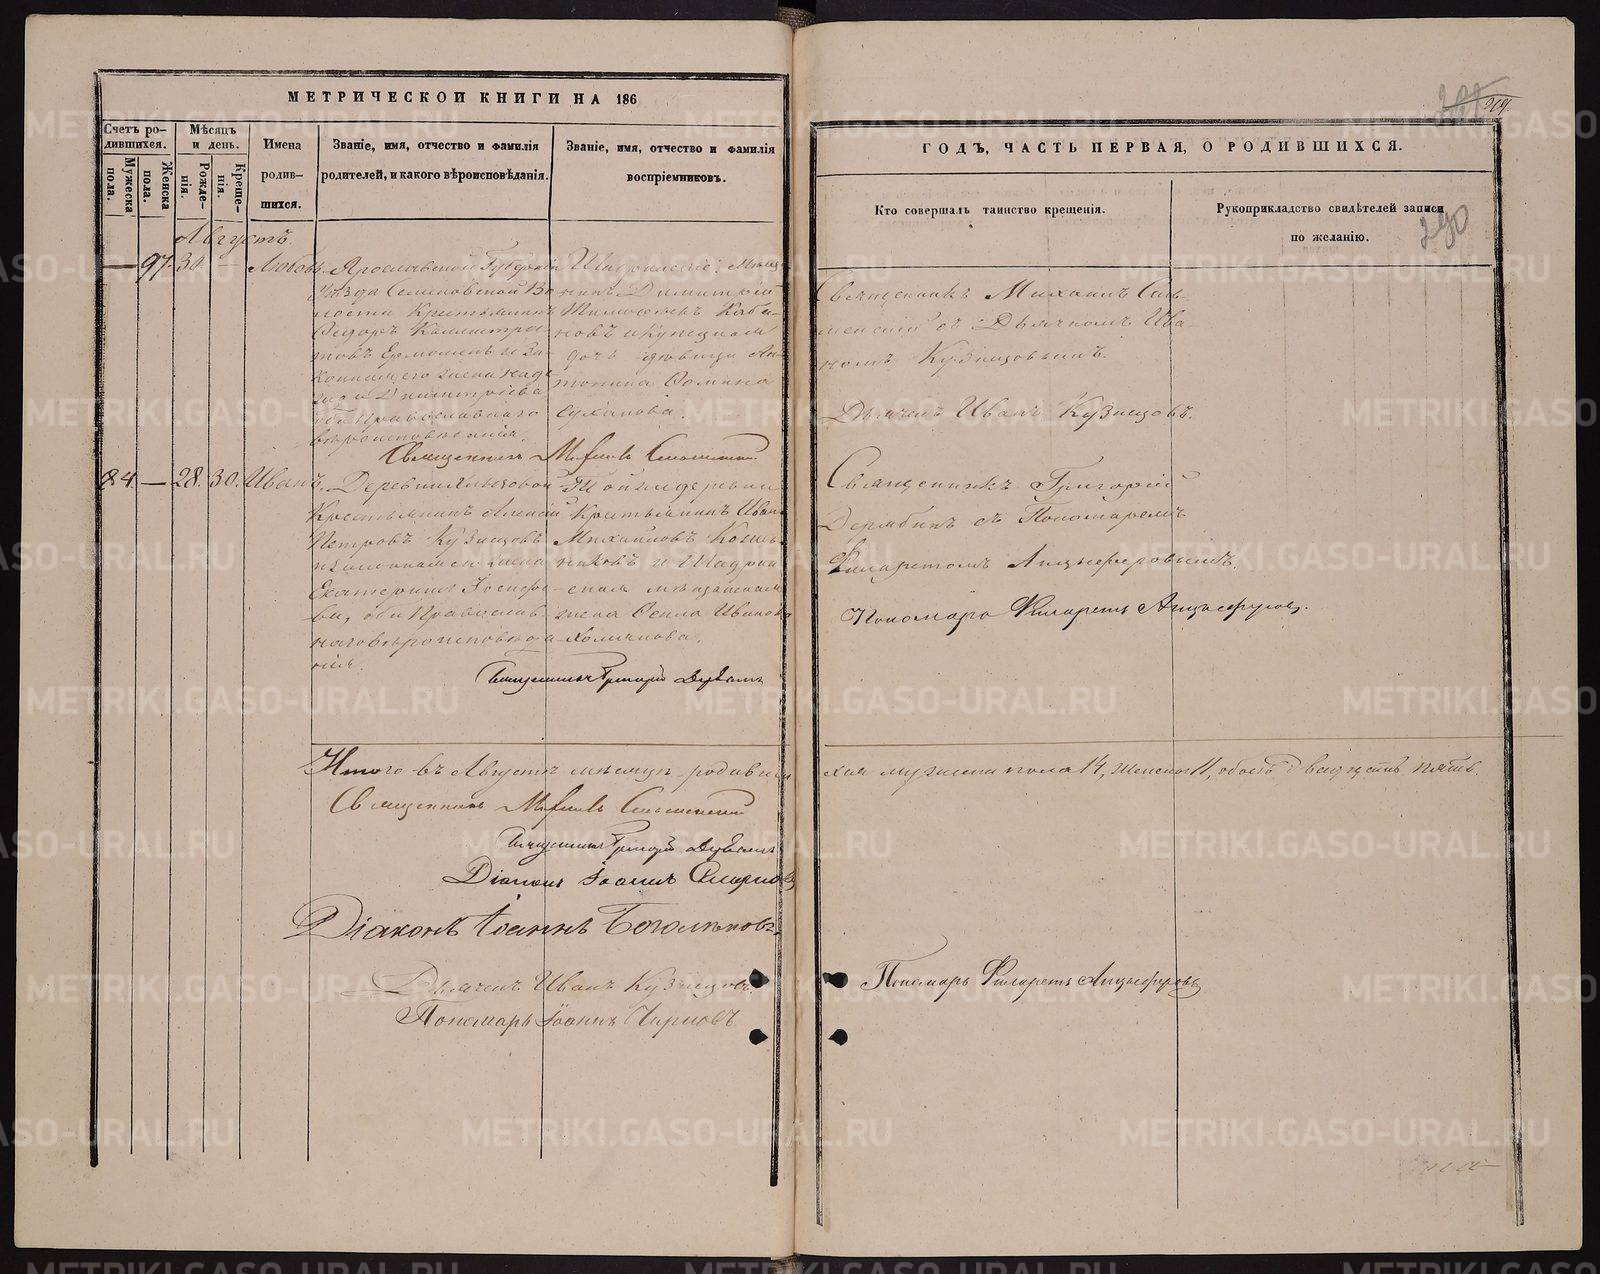 МЕТРИЧЕСКОЙ КНИГИ НА 186
Счетъ ро-
дившихся.
Мѣсяцъ
и день.
Мужеска
пола.
Женска
пола.
Рожде-
нія.
Креще-
нія.
Имена
родив-
шихся.
Званіе, имя, отчество и фамилія
родителей, и какого вѣроисповѣданія.
Званіе, имя, отчество и фамилія
воспріемниковъ.
Августъ.
— 97. 30. — Любовь.
Ярославской Губерніи
Уѣзда Семеновской Во
лости Крестьянинъ
Федоръ Каллистра-
товъ Ермолинъ и за-
конная его жена Наде
жда Дмитріева
оба Православнаго
вѣроисповѣданія.
Шадринскіе: Мѣща
нинъ Димитрій
Тимофѣевъ Каба-
новъ и купецкая
дочь дѣвица Ан-
тонина Фомина
Суханова.
Священникъ Михаилъ
84. — 28. 30. Иванъ.
Деревни
Крестьянинъ Алексій
Петровъ Кузнецовъ
и законная его жена
Екатерина Іосифо-
ва, оба Православ-
наго вѣроисповѣда
нія.
Той же деревни
Крестьянинъ Иванъ
Михайловъ
и Шадрин
жена Иванова
Священникъ Григорій
Итого въ Августѣ мѣсяцѣ родивши
Священникъ Михаилъ
Священникъ Григорій
Діаконъ Іоаннъ Смирновъ
Діаконъ Іоаннъ Боголѣповъ.
Дьячекъ Иванъ Кузнецовъ.
Пономарь Іоаннъ Чирковъ.
219
290
ГОДЪ, ЧАСТЬ ПЕРВАЯ, О РОДИВШИХСЯ.
Кто совершалъ таинство крещенія.
Рукоприкладство свидѣтелей записи
по желанію.
Священникъ Михаилъ
съ Дьячкомъ Ива-
номъ Кузнецовымъ.
Дьячекъ Иванъ Кузнецовъ.
Священникъ Григорій
Дерябинъ съ Пономаремъ
Филаретомъ Анцыферовымъ.
Пономарь Филаретъ Анцыферовъ.
хся мужеска пола 14, женска 11, обоего двадцать пять.
Пономарь Филаретъ Анцыферовъ
METRIKI.GASO-URAL.RU